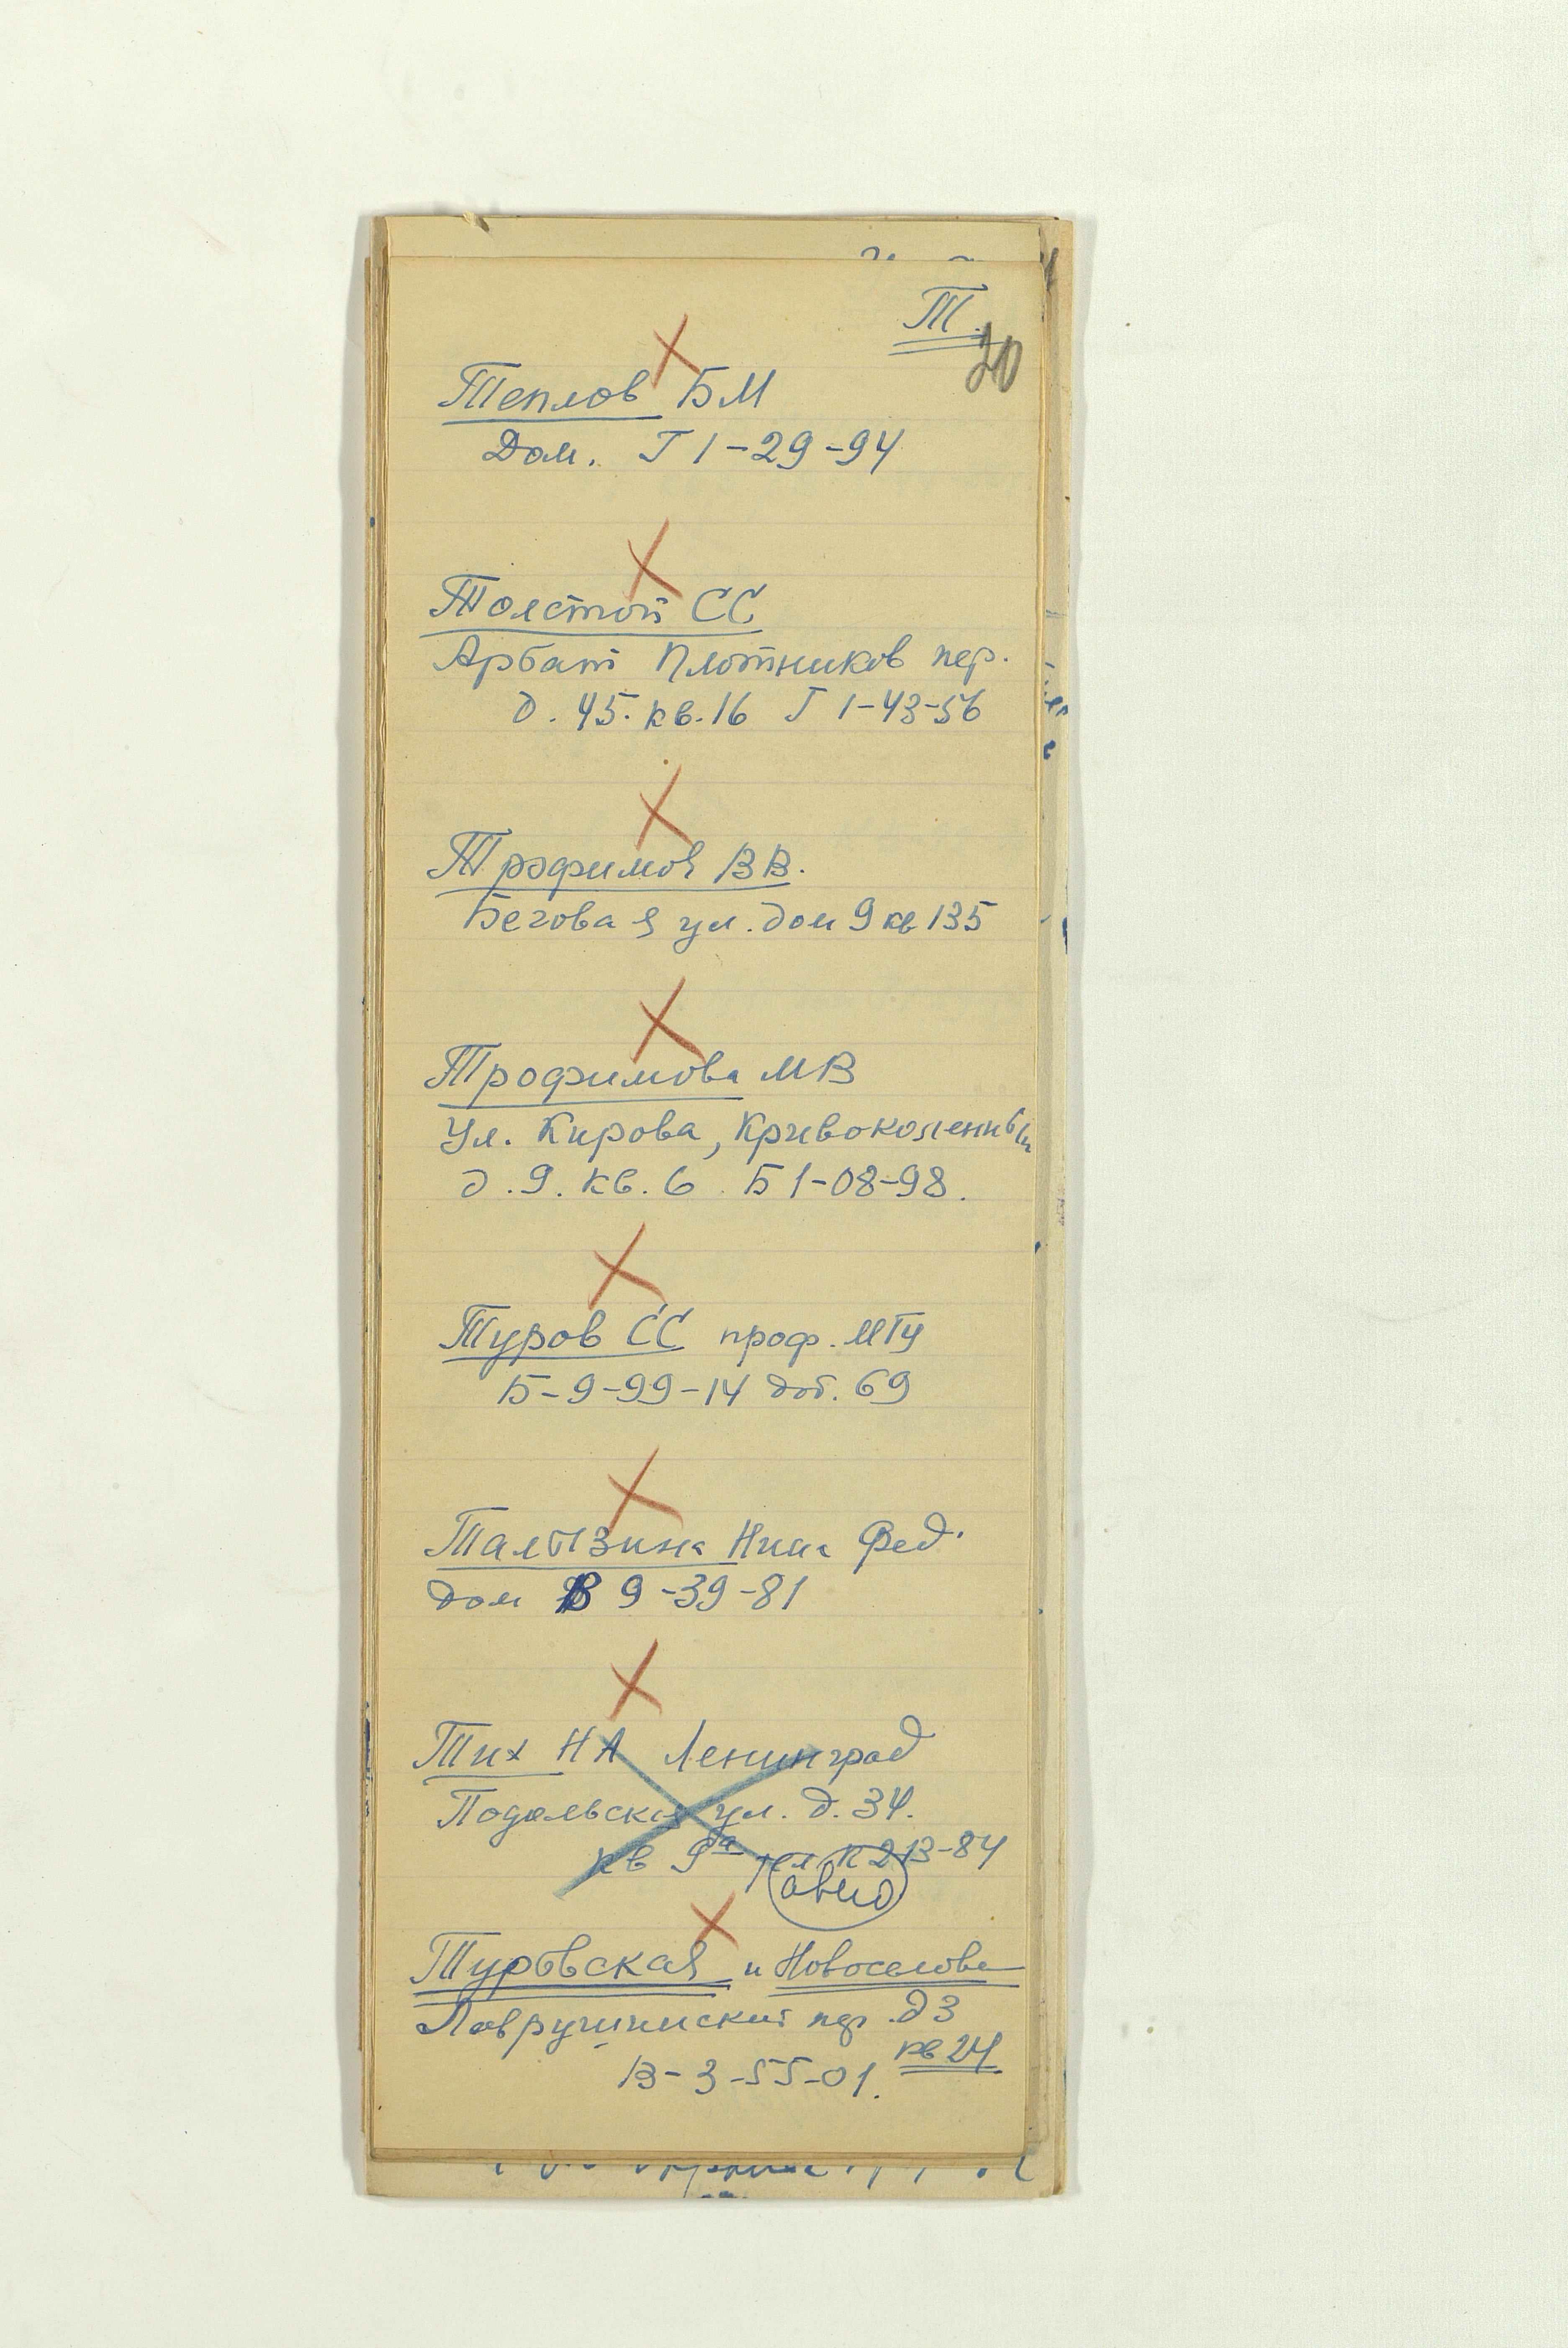 Т.
20
Теплов БМ
Дом. Г 1-29-94
Толстой СС
Арбат Плотников пер.
д. 45. кв. 16 Г 1-43-56
Трофимов ВВ.
Беговая ул. дом 9 кв 135
Трофимова МВ
Ул. Кирова, Кривоколенный
д. 9. кв. 6. Б 1-08-98.
Туров СС проф. МГУ
Б-9-99-14 доб. 69
Талызина Нина Фед.
дом В 9-39-81
Тих НА Ленинград
Подольская ул. д. 34.
кв 9а тел К 213-84
авио
Туровская и Новоселова
Лаврушинский пер. д 3
кв 24
В-3-55-01.